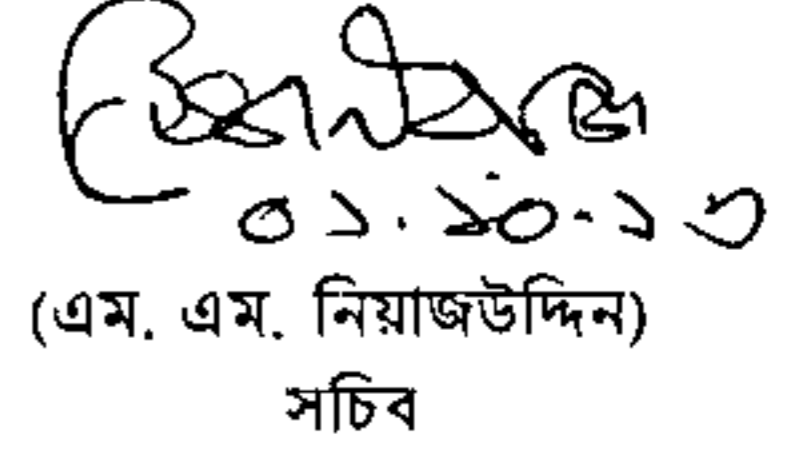 ০১.১০.১৩
(এম. এম. নিয়াজউদ্দিন)
সচিব